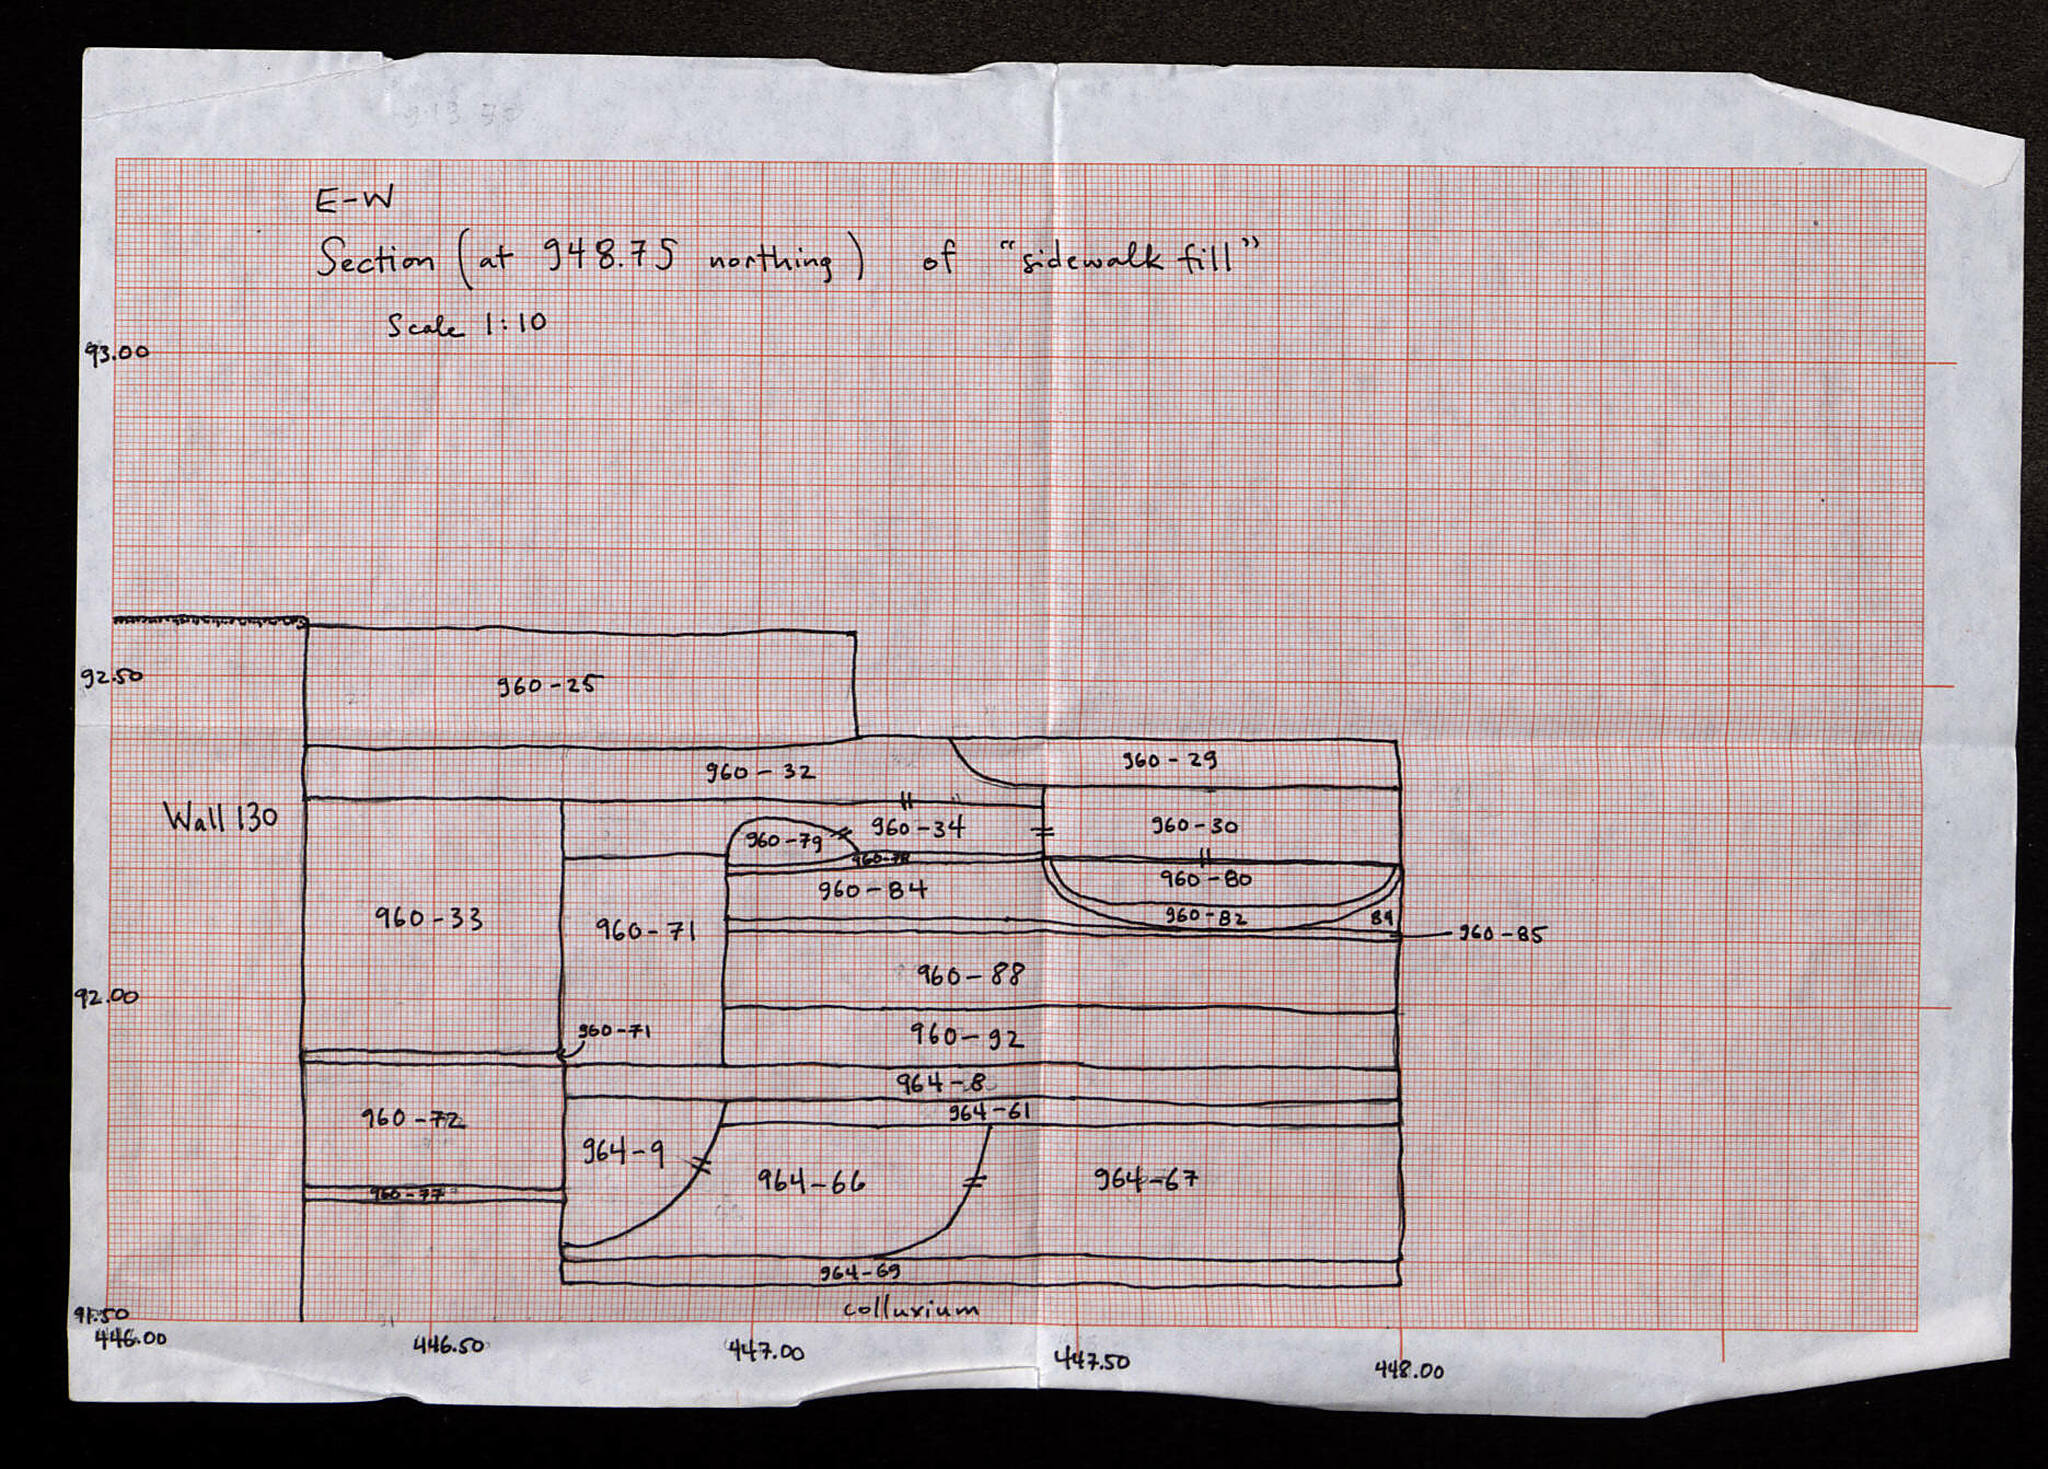 E-W
Section (at 948.75 northing) of "sidewalk fill"
Scale 1:10
93.00
92.50
960-25
960-29
960-32
Wall 130
960-34
960-30
960-79
960-78
960-84
960-80
960-33
960-71
960-82
84
960-85
960-88
92.00
960-71
960-92
964-8
964-61
960-72
964-9
964-66
964-67
960-77
964-69
colluvium
91.50
446.00
446.50
447.00
447.50
448.00